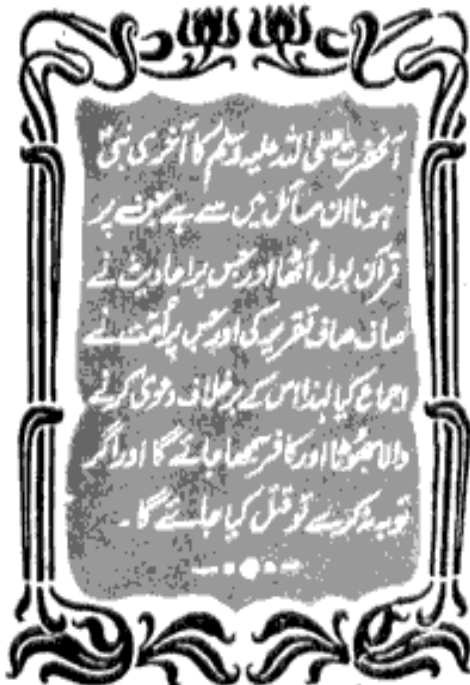 آنحضرت صلی اللہ علیہ وسلم کا آخری نبی
ہونا ان مسائل میں سے ہے جن پر
قرآن بول اُٹھا اور جس پر احادیث نے
صاف صاف تقریر کی اور جس پر اُمت نے
اجماع کیا لہٰذا اس کے برخلاف دعویٰ کرنے
والا جھوٹا اور کافر سمجھا جائے گا اور اگر
توبہ نہ کرے تو قتل کیا جائے گا ۔